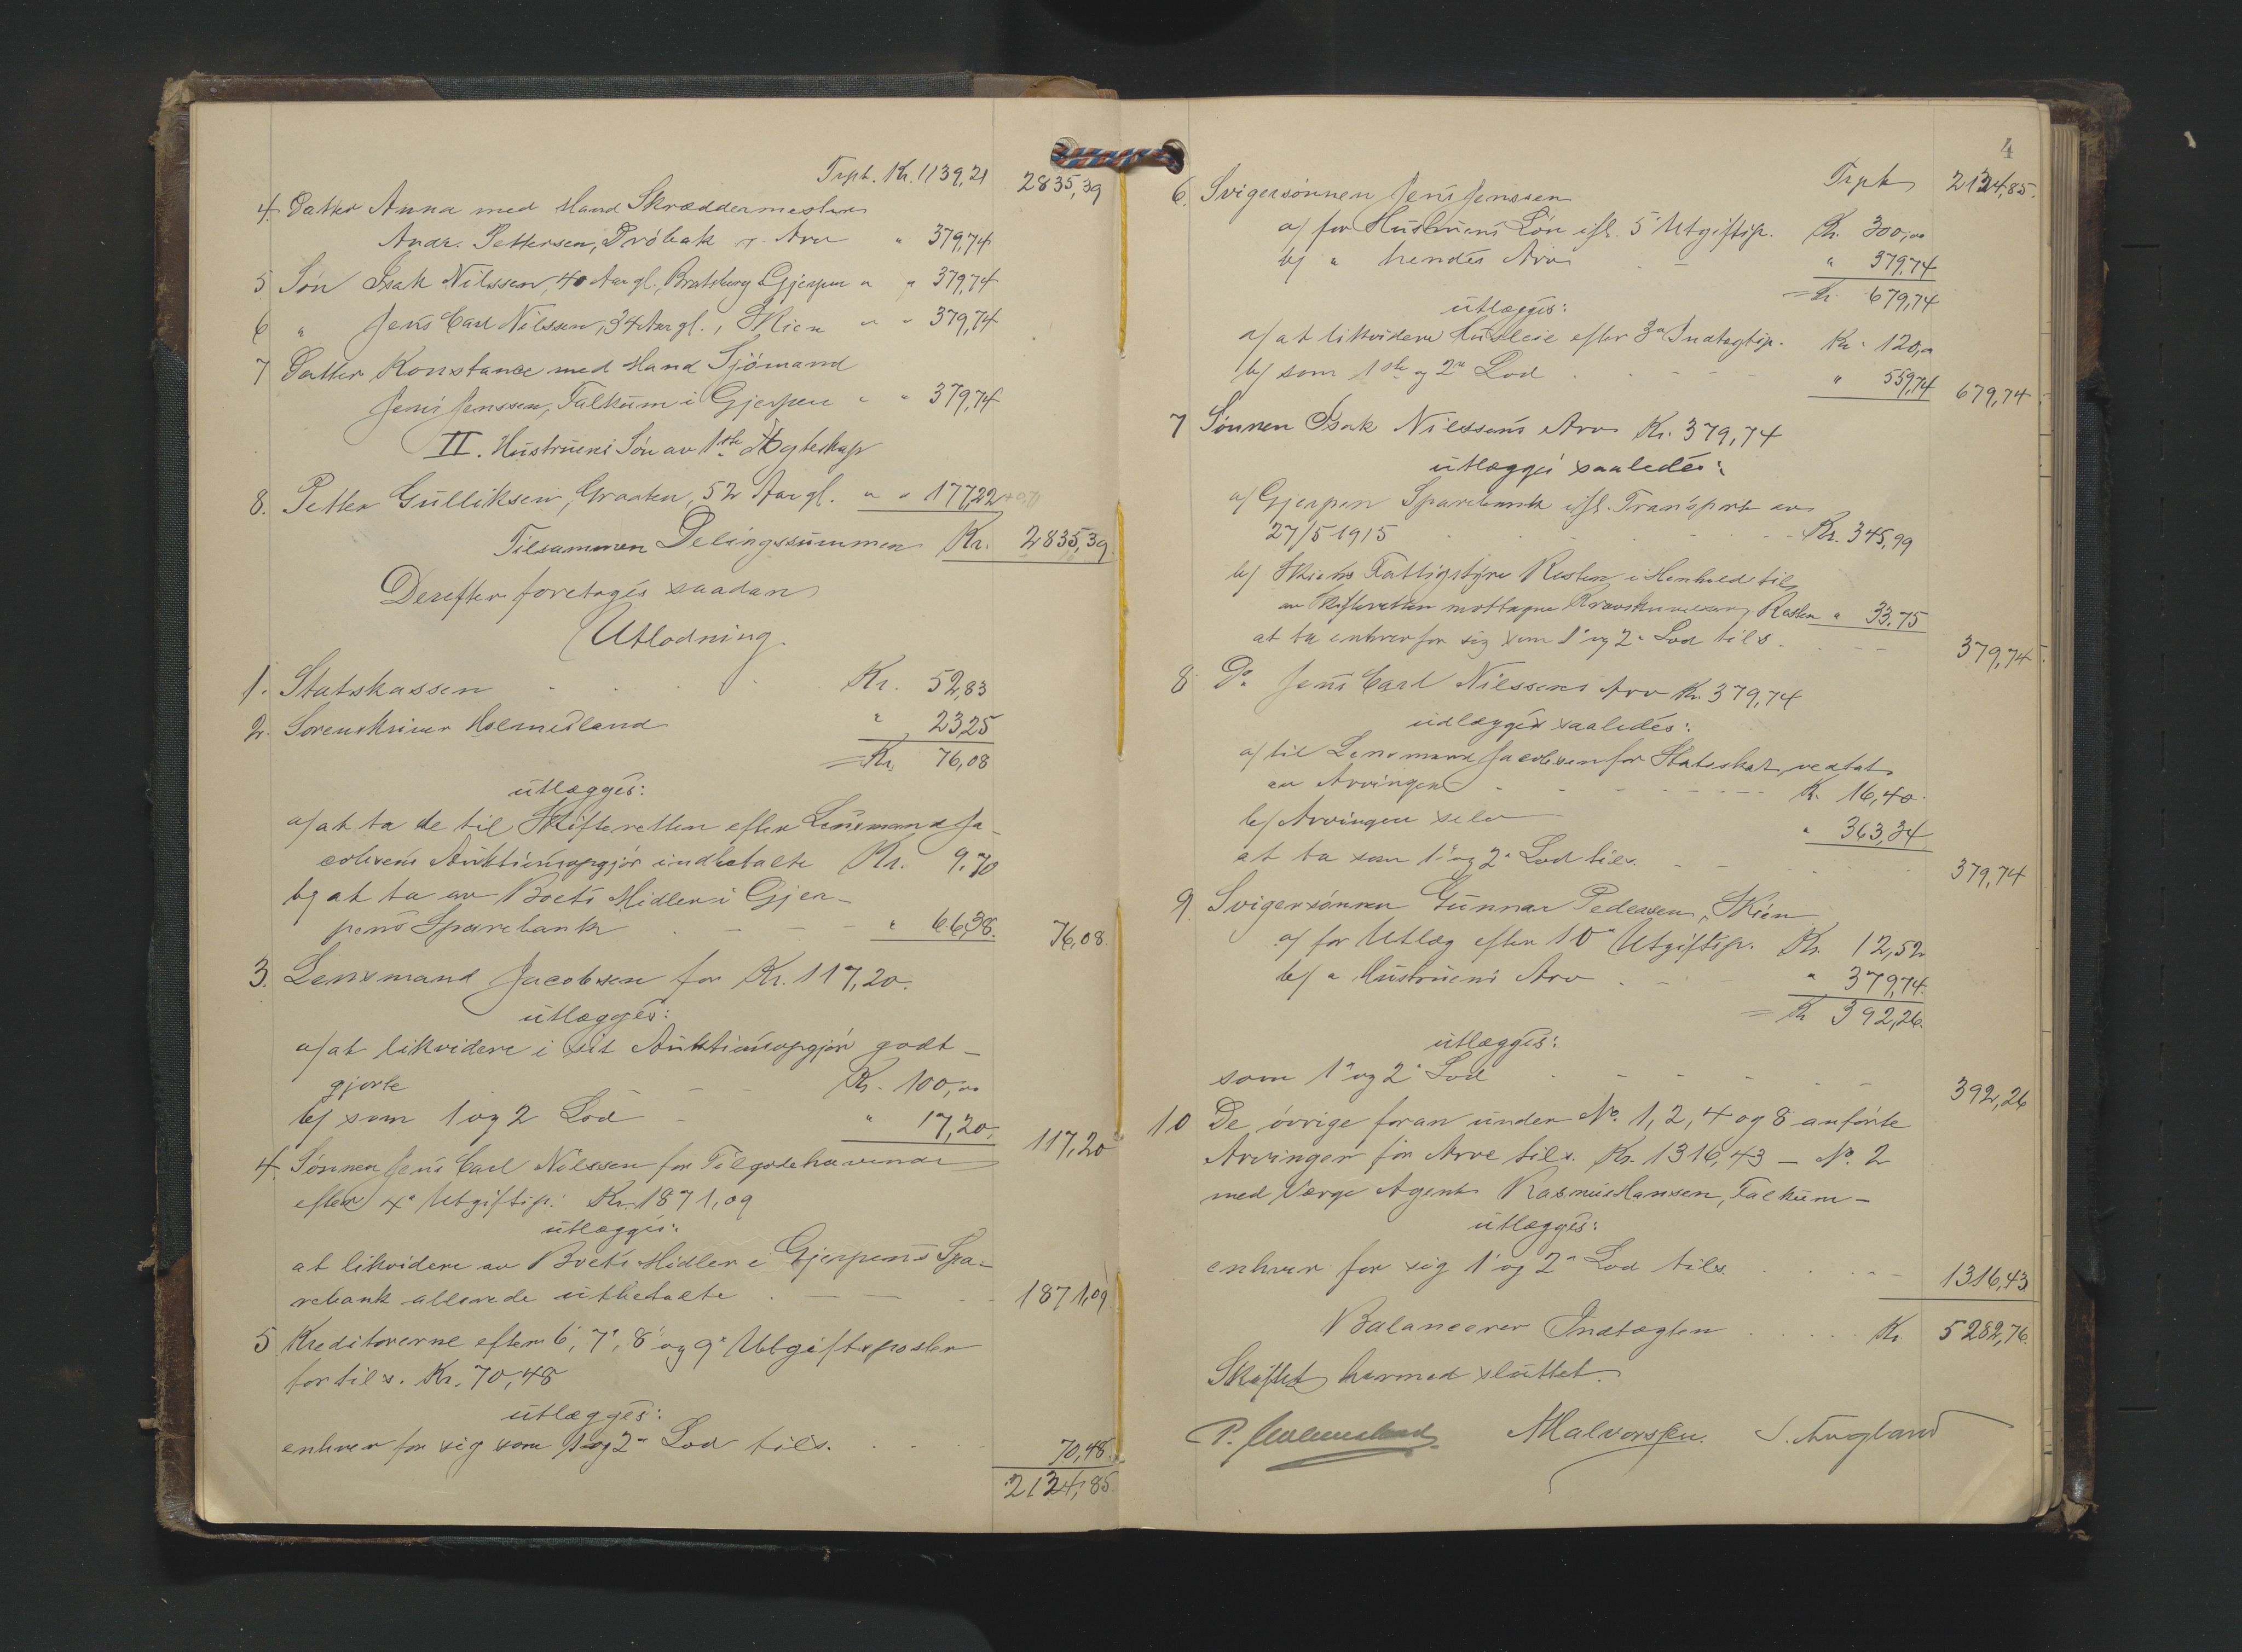 Trpt. Kr. 1139,21 2835,39
4. Datter Anna med Mand Skræddermester
Andr. Pettersen, Dröbak Arv " 379,74
5 Sön Isak Nilssen, 40 Aar gl., Bratsberg Gjerpen " " 379,74
6 " Jens Carl Nilssen, 34 Aar gl., Skien " " 379,74
7 Datter Konstance med Mand Sjömand
Jens Jenssen, Falkum i Gjerpen " " 379,74
II. Hustruens Sön av 1ste Ægteskap
8. Petter Gulliksen, Graaten, 52 Aar gl. " " 177,22
Tilsammen Delingssummen Kr. 2835,39
Derefter foretages saadan
Utlodning.
1. Statskassen Kr. 52,83
2. Sorenskriver Holmesland " 23,25
= Kr. 76,08
utlægges:
a/ at ta de til Skifteretten efter Lensmand Ja-
cobsens Auktionsopgjör indbetalte Kr. 9,70
b/ at ta av Boets Midler i Gjer-
pens Sparebank " 66,38. 76,08.
3. Lensmand Jacobsen for Kr. 117,20.
utlægges:
a/ at likvidere i sit Auktionsopgjör godt-
gjorte Kr. 100,00
b/ som 1 og 2 Lod " 17,20. 117,20
4. Sönnen Jens Carl Nilssen for Tilgodehavende
efter 4a Utgiftsp. Kr. 1871,09
utlægges:
at likvidere av Boets Midler i Gjerpens Spa-
rebank allerede utbetalte 1871,09
5 Kreditorerne efter 6', 7', 8' og 9' Utgiftsposter
for tils. Kr. 70,48
utlægges:
enhver for sig som 1 og 2" Lod tils. 70,48.
2134,85.
4
Trpt 2134,85.
6. Svigersönnen Jens Jenssen
a/ for Hustruens Lön ifl. 5' Utgiftsp. Kr. 300,00
b/ " hendes Arv " 379,74
= Kr. 679,74
utlægges:
a/ at likvidere Husleie efter 3" Indtægtsp. Kr. 120,00
b/ som 1ste og 2" Lod " 559,74 679,74
7 Sönnen Isak Nilssens Arv Kr. 379,74
utlægges saaledes:
a/ Gjerpen Sparebank ifl. Transport av
27/5 1915 Kr. 345,99
b/ Skiens Fattigstyre Resten i Henhold til
av Skifteretten mottagne Resten " 33,75
at ta enhver for sig som 1' og 2" Lod tils. 379,74.
8 Do Jens Carl Nilssens Arv Kr. 379,74
udlægges saaledes:
a/ til Lensmand Jacobsen for Statsskat vedtat
av Arvingen Kr. 16,40.
b/ Arvingen selv " 363,34
at ta som 1' og 2" Lod tils. 379,74
9. Svigersönnen Gunnar Pedersen, Skien
a/ for Utlæg efter 10" Utgiftsp. Kr. 12,52
b/ " Hustruens Arv " 379,74.
= Kr 392,26.
utlægges:
som 1" og 2" Lod 392,26
10 De övrige foran under No. 1, 2, 4 og 8 anförte
Arvinger for Arve tils. Kr. 1316,43 - No. 2
med Værge Agent Rasmus Hansen, Falkum -
utlægges:
enhver for sig 1' og 2" Lod tils. 1316,43
Balancerer Indtægten Kr 5282,76.
Skiftet hermed sluttet.
P. Holmesland. A Halvorsen. S. Augland